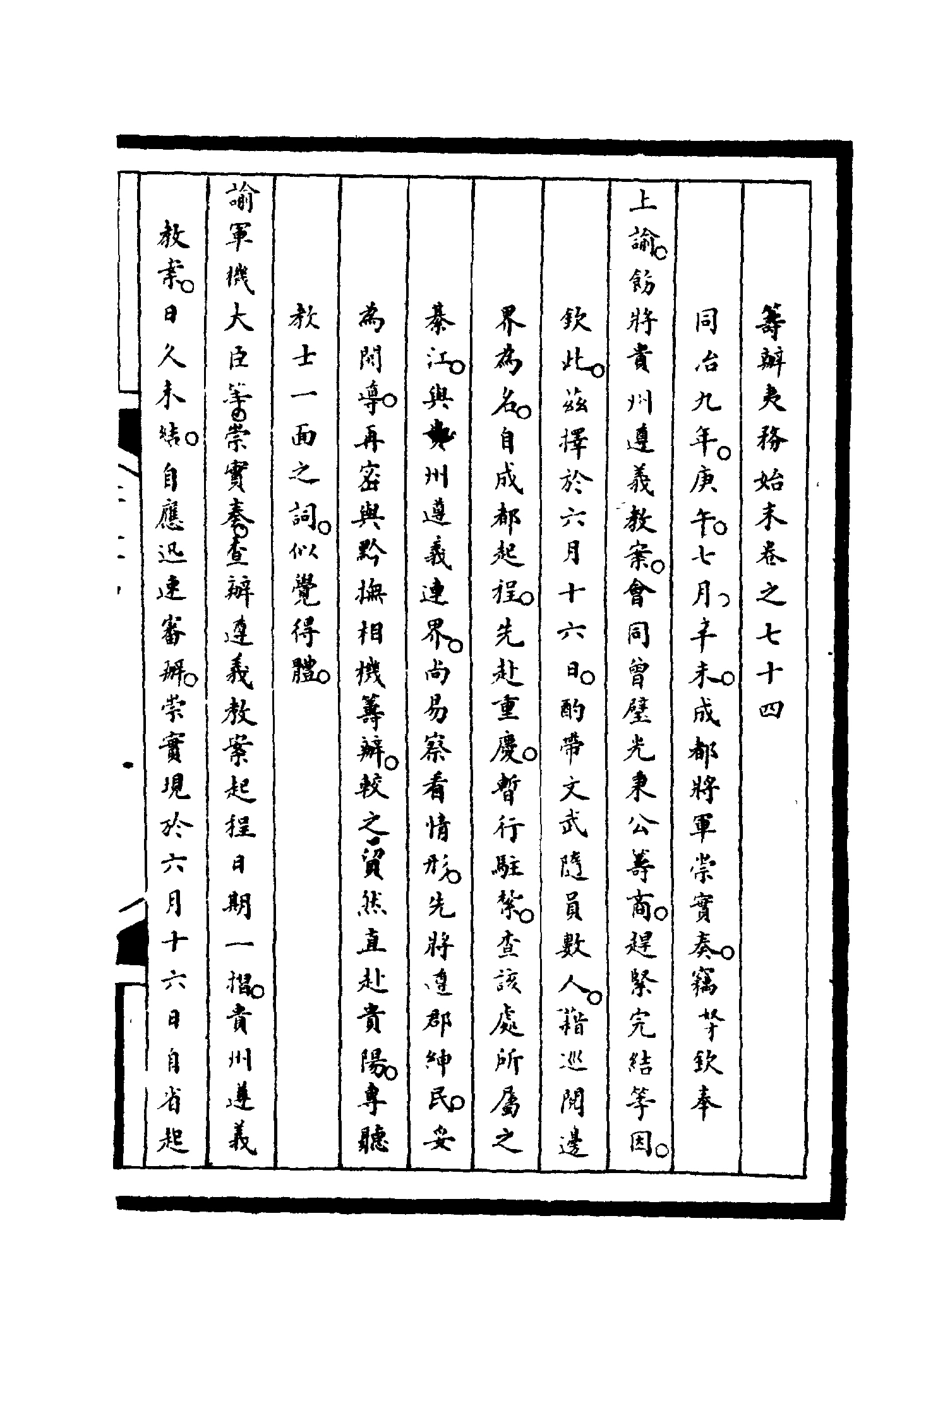 籌辦夷務始末卷之七十四
同治九年。庚午。七月。辛未。成都將軍崇實奏。竊奴才欽奉
上諭。飭將貴州遵義教案。會同曾璧光秉公籌商。趕緊完結等因。
欽此。茲擇於六月十六日。酌帶文武隨員數人。藉巡閱邊
界為名。自成都起程。先赴重慶。暫行駐紮。查該處所屬之
綦江。與貴州遵義連界。尚易察看情形。先將遵郡紳民。妥
為開導。再密與黔撫相機籌辦。較之貿然直赴貴陽。專聽
教士一面之詞。似覺得體。
諭軍機大臣等。崇實奏。查辦遵義教案起程日期一摺。貴州遵義
教案。日久未結。自應迅速審辦。崇實現於六月十六日自省起